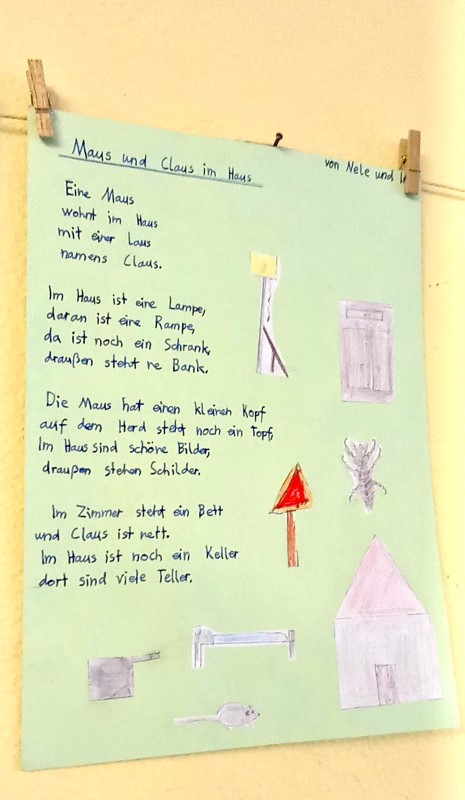 Maus und Claus im Haus
von Nele und
Eine Maus
wohnt im Haus
mit einer Laus
namens Claus.
Im Haus ist eine Lampe,
daran ist eine Rampe,
da ist noch ein Schrank,
draußen steht ne Bank.
Die Maus hat einen kleinen Kopf
auf dem Herd steht noch ein Topf,
Im Haus sind schöne Bilder,
draußen stehen Schilder.
Im Zimmer steht ein Bett
und Claus ist nett.
Im Haus ist noch ein Keller
dort sind viele Teller.